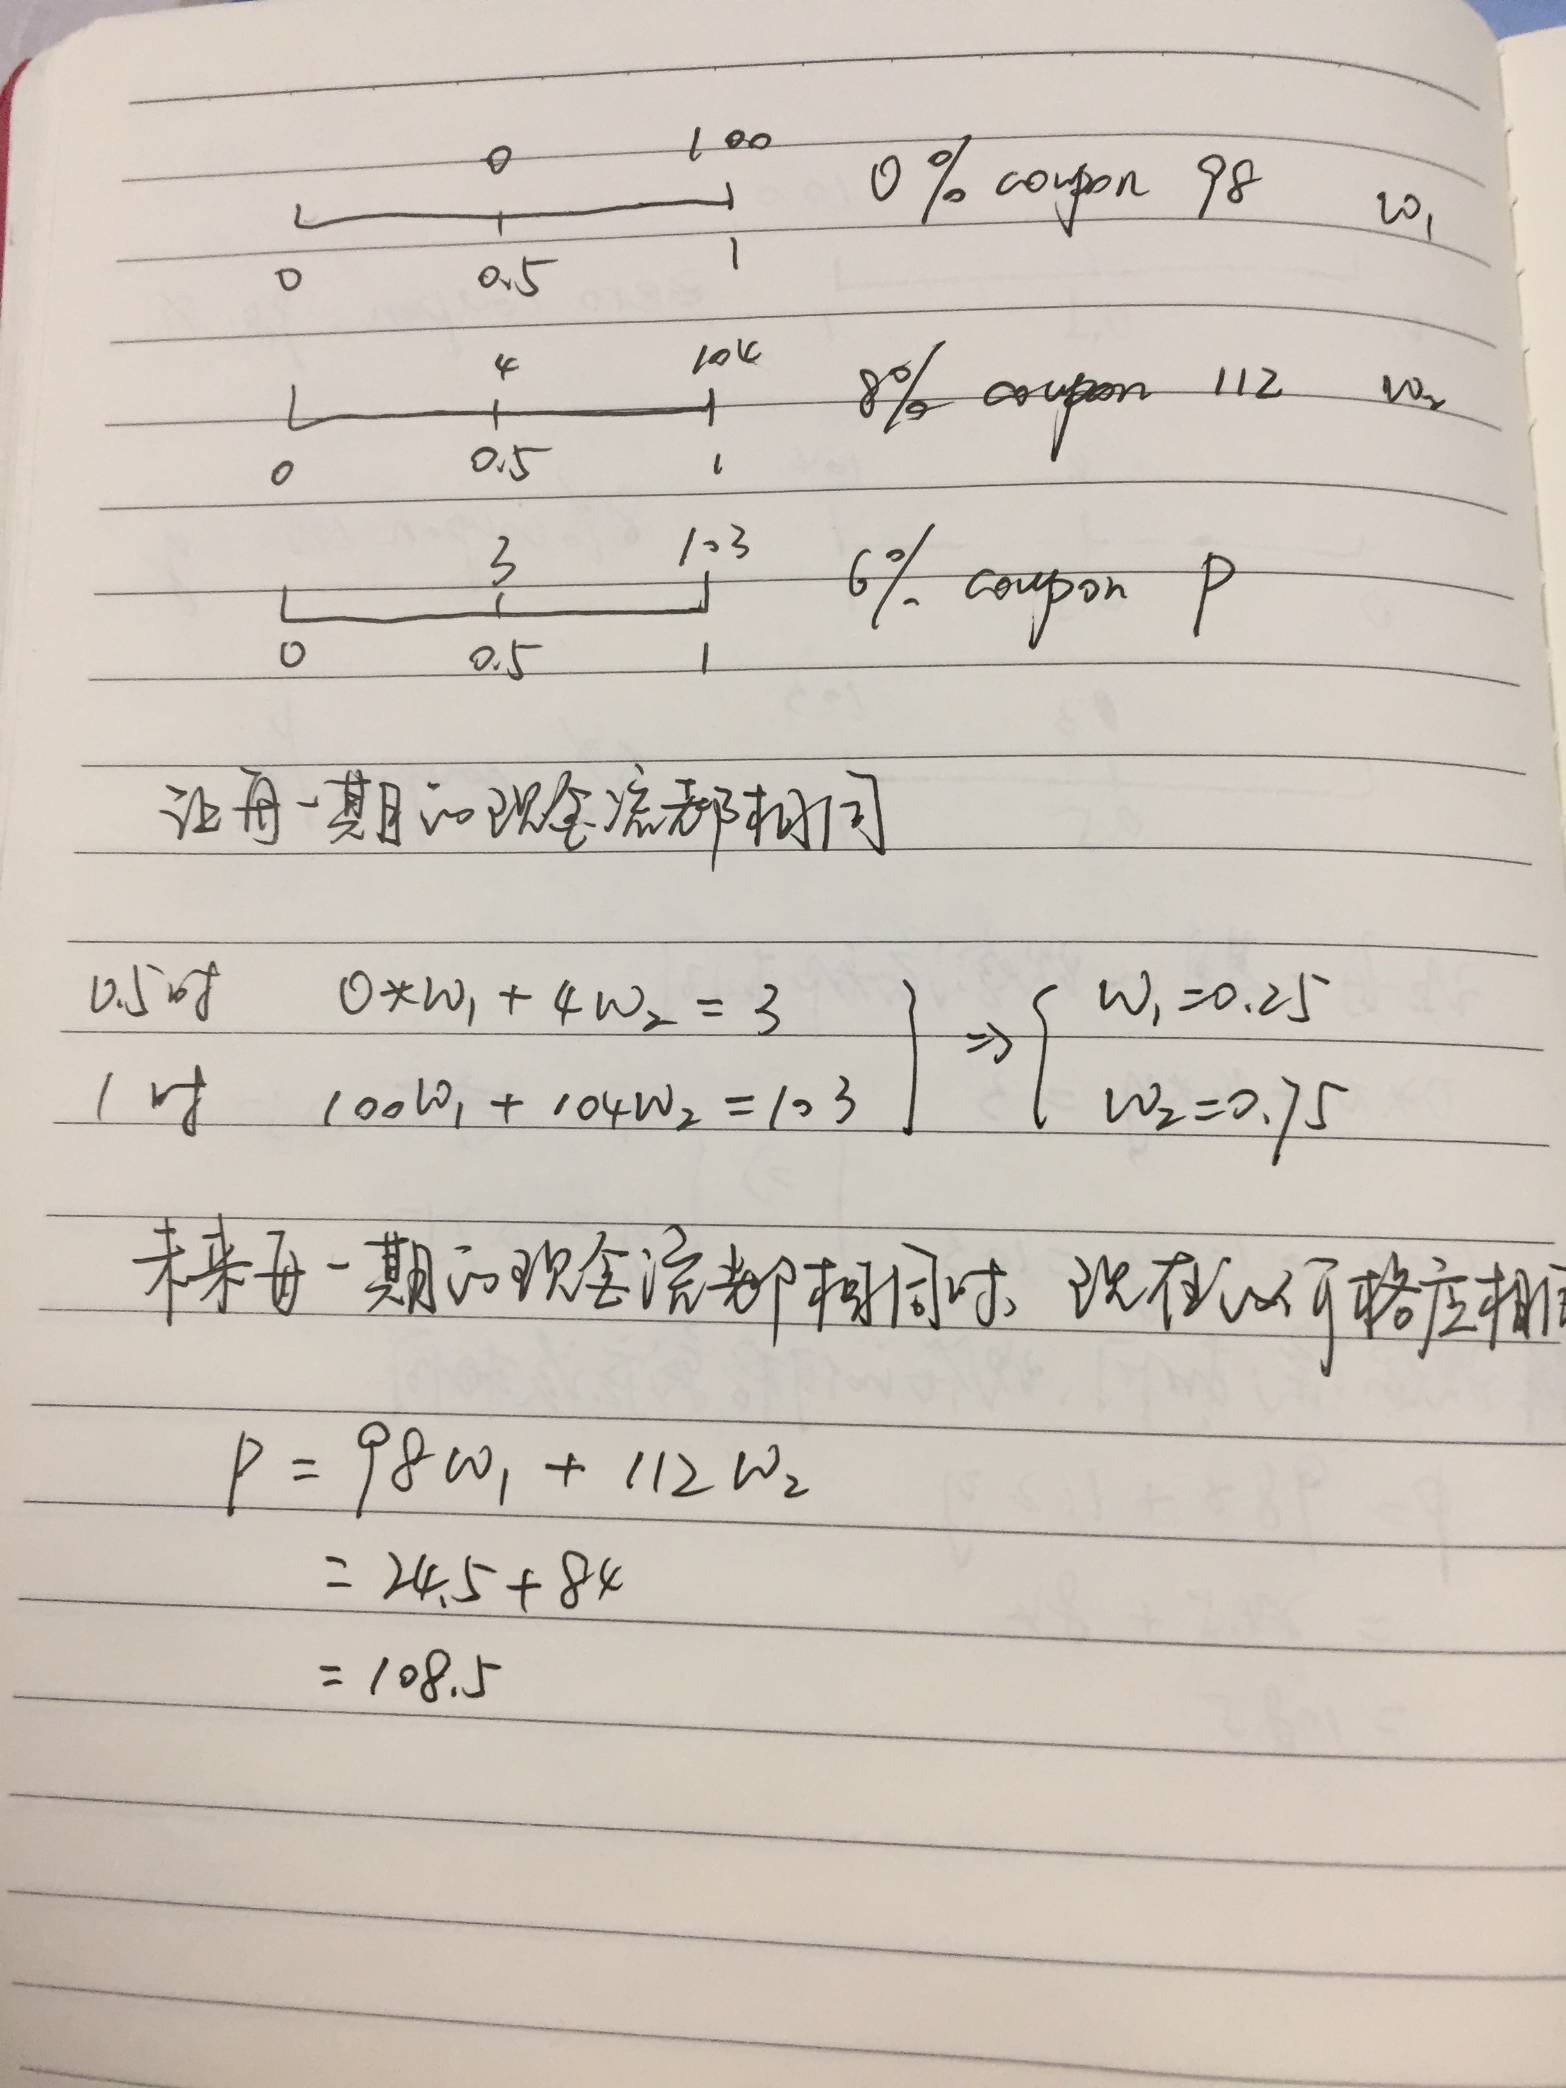 0 100
0% coupon 98 w₁
0 0.5 1
4 104
8% coupon 112 w₂
0 0.5 1
3 103
6% coupon P
0 0.5 1
让每一期的现金流都相同
0.5时 0*w₁ + 4w₂ = 3 } ⇒ { w₁=0.25
1时 100w₁ + 104w₂ = 103 w₂=0.75
未来每一期的现金流都相同时、现在的价格应相同
P = 98w₁ + 112w₂
= 24.5 + 84
= 108.5